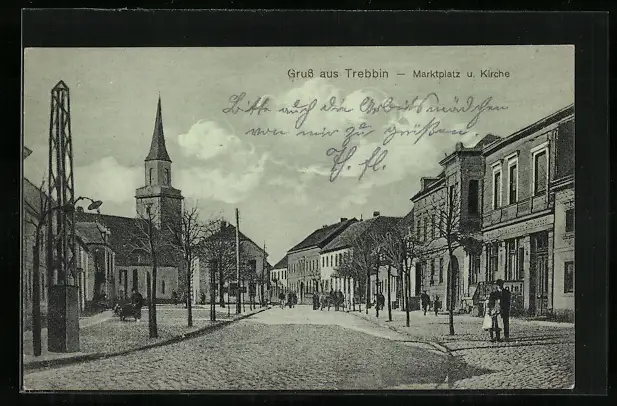 Gruß aus Trebbin — Marktplatz u. Kirche
Bitte auch die Arbeitsmädchen
von mir zu grüßen
Th. Fl.